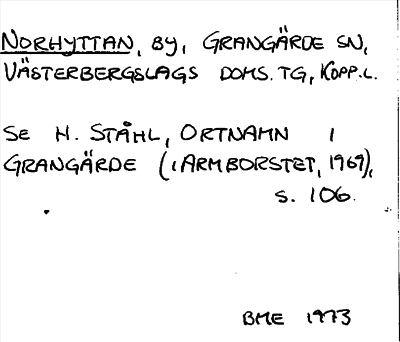 NORHYTTAN, BY, GRANGÄRDE SN,
VÄSTERBERGSLAGS DOMS. TG, KOPP. L.
SE H. STÅHL, ORTNAMN I
GRANGÄRDE (I ARMBORSTET, 1969),
S. 106.
BME 1973